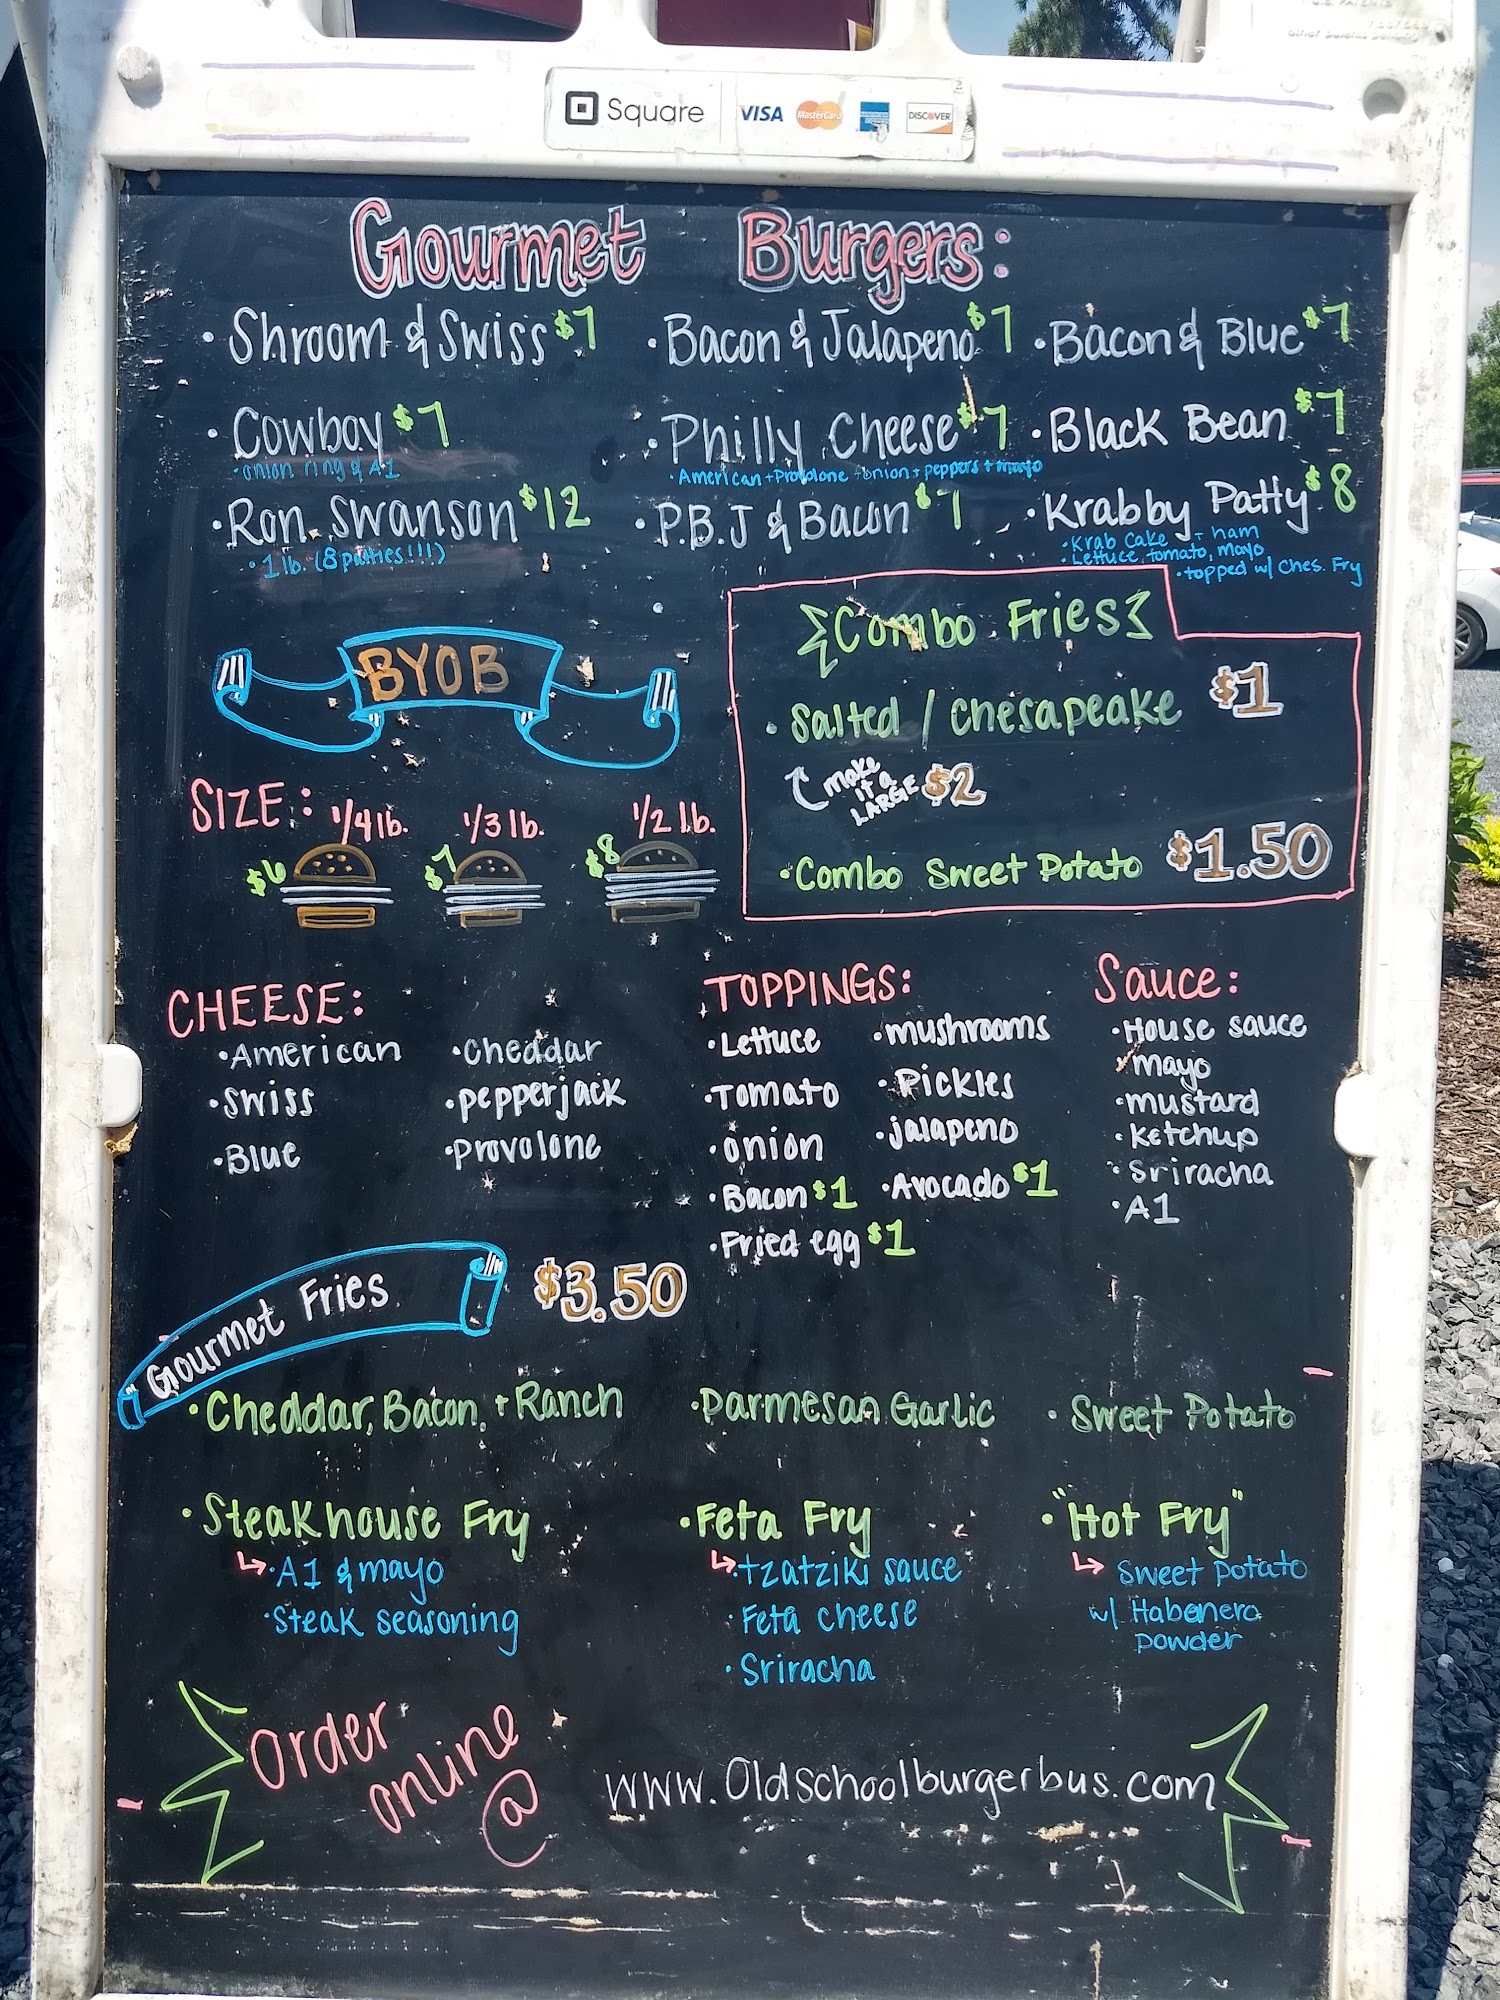 Square VISA MasterCard DISCOVER
Gourmet Burgers:
• Shroom & Swiss $7 • Bacon & Jalapeno $7 • Bacon & Blue $7
• Cowboy $7 • Philly Cheese $7 • Black Bean $7
• onion ring & A1 • American + Provolone + onion + peppers + mayo
• Ron Swanson $12 • P.B.J & Bacon $7 • Krabby Patty $8
• 1 lb. (8 patties!!!) • Krab Cake + ham
• Lettuce, tomato, mayo
• topped w/ Ches. Fry
BYOB
Combo Fries
• Salted / Chesapeake $1
make it a LARGE $2
• Combo Sweet Potato $1.50
SIZE: 1/4 lb. 1/3 lb. 1/2 lb.
$6 $7 $8
CHEESE:
• American • Cheddar
• Swiss • pepperjack
• Blue • Provolone
TOPPINGS:
• Lettuce • mushrooms
• Tomato • Pickles
• onion • jalapeno
• Bacon $1 • Avocado $1
• Fried egg $1
Sauce:
• House sauce
• mayo
• mustard
• Ketchup
• Sriracha
• A1
Gourmet Fries $3.50
• Cheddar, Bacon, + Ranch • Parmesan Garlic • Sweet Potato
• Steakhouse Fry • Feta Fry • "Hot Fry"
• A1 & mayo
• Steak seasoning
• Tzatziki sauce
• Feta cheese
• Sriracha
Sweet potato
w/ Habanero
powder
Order
online
@
www.Oldschoolburgerbus.com